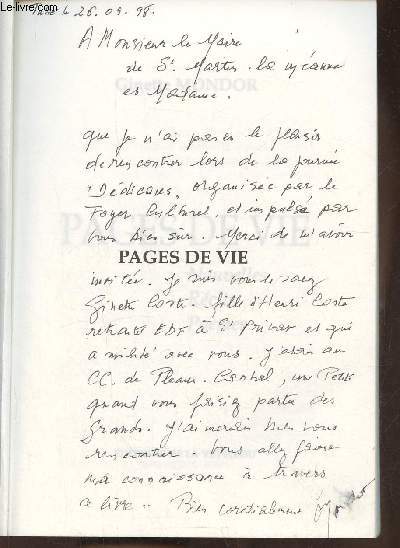 www.le-livre.com
le 26.09.98.
A Monsieur le Maire
de St Martin la
et Madame.
Ginette MONDOR
que je n'ai pas eu le plaisir
de rencontrer lors de la journée
"Dédicaces, organisée par le
Foyer Culturel, et impulsé par
vous bien sur. Merci de m'avoir
PAGES DE VIE
invitée. Je suis vous le savez
Ginette Coste. fille d'Henri Coste
retraité EDF à St Privat et qui
a milité avec vous. J'étais au
CC. de Pleaux. Cantal, un Petit
quand vous faisiez partie des
Grands. J'aimerais bien vous
rencontrer. Vous allez faire
ma connaissance à travers
ce livre. Bien cordialement